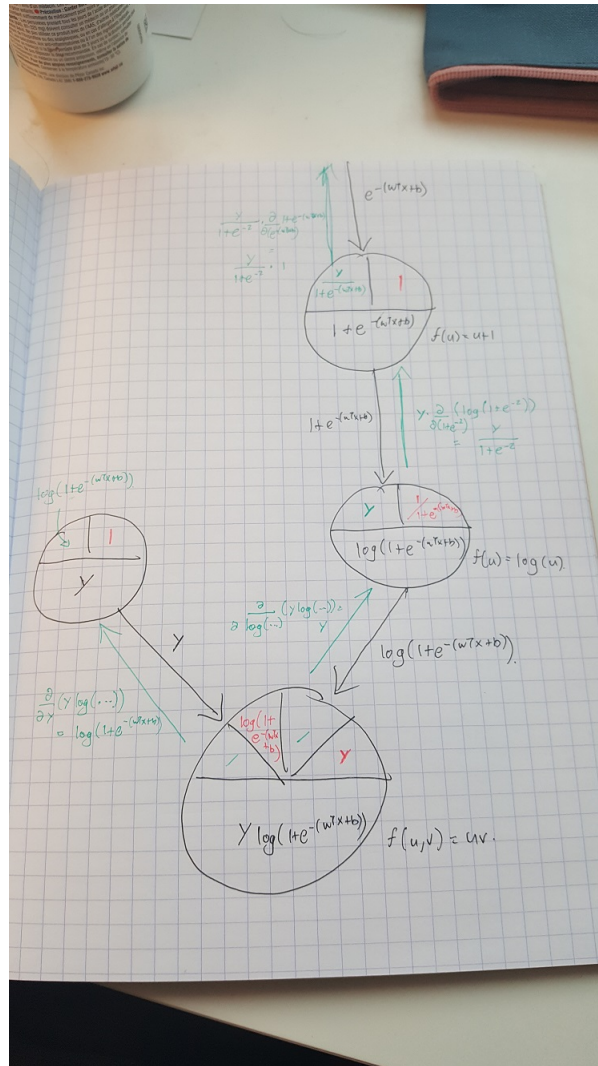 e^-(wᵀx+b)
y/(1+e^-2) · ∂/∂(e^-(wᵀx+b)) 1+e^-(wᵀx+b)
=
y/(1+e^-2) · 1
y/(1+e^-(wᵀx+b))
1
1+e^-(wᵀx+b)
f(u)=u+1
1+e^-(wᵀx+b)
y·∂/∂(1+e^-2) (log(1+e^-2))
= y/(1+e^-2)
log(1+e^-(wᵀx+b))
1
y
y
1/(1+e^-(wᵀx+b))
log(1+e^-(wᵀx+b))
f(u)=log(u)
∂/∂log(...) (y log(...)) =
y
y
log(1+e^-(wᵀx+b)).
∂/∂y (y log(...))
= log(1+e^-(wᵀx+b))
log(1+
e^-(wᵀx
+b)
1
1
y
y log(1+e^-(wᵀx+b))
f(u,v) = uv.